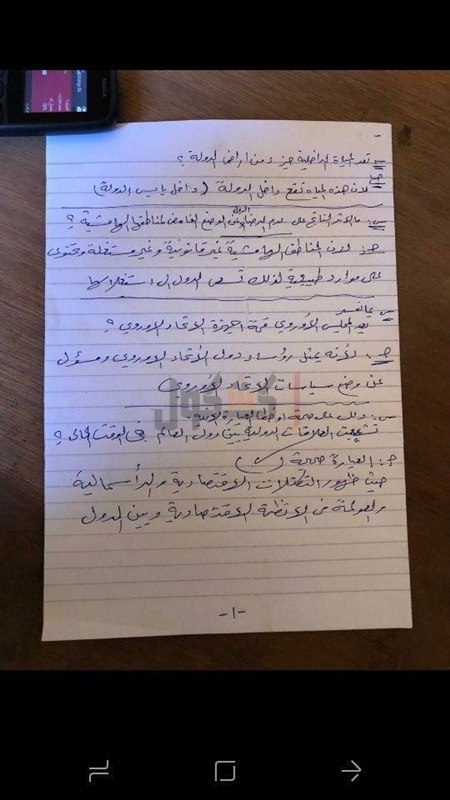 س: تعد المياه الداخلية جزء من أراضي الدولة ؟
جـ: لأن هذه المياه تقع داخل الدولة (داخل يابس الدولة)
س: ما الأثر الناتج على عدم الوضع الخاص لمناطق الهامشية ؟
جـ: لأن المناطق الهامشية غير قانونية وغير مستغلة وتحتوى
على موارد طبيعية لذلك تسعى الدول الى استغلالها
س بما تفسر
يعد المجلس الأوروبي قمة اجهزة الاتحاد الاوروبي ؟
جـ: لأنه يمثل رؤساء دول الأتحاد الاوروبي ومسؤول
عن وضع سياسات الاتحاد الاوروبي
س: دلل على صحة أو خطأ العبارة الآتية:
تشعبت العلاقات الدولية بين دول العالم فى الوقت الحالى ؟
جـ: العبارة صحيحة (✓)
حيث ظهور التكتلات الاقتصادية والرأسمالية
والعولمة من الانظمة الاقتصادية وبين الدول
-١-
NOKIA